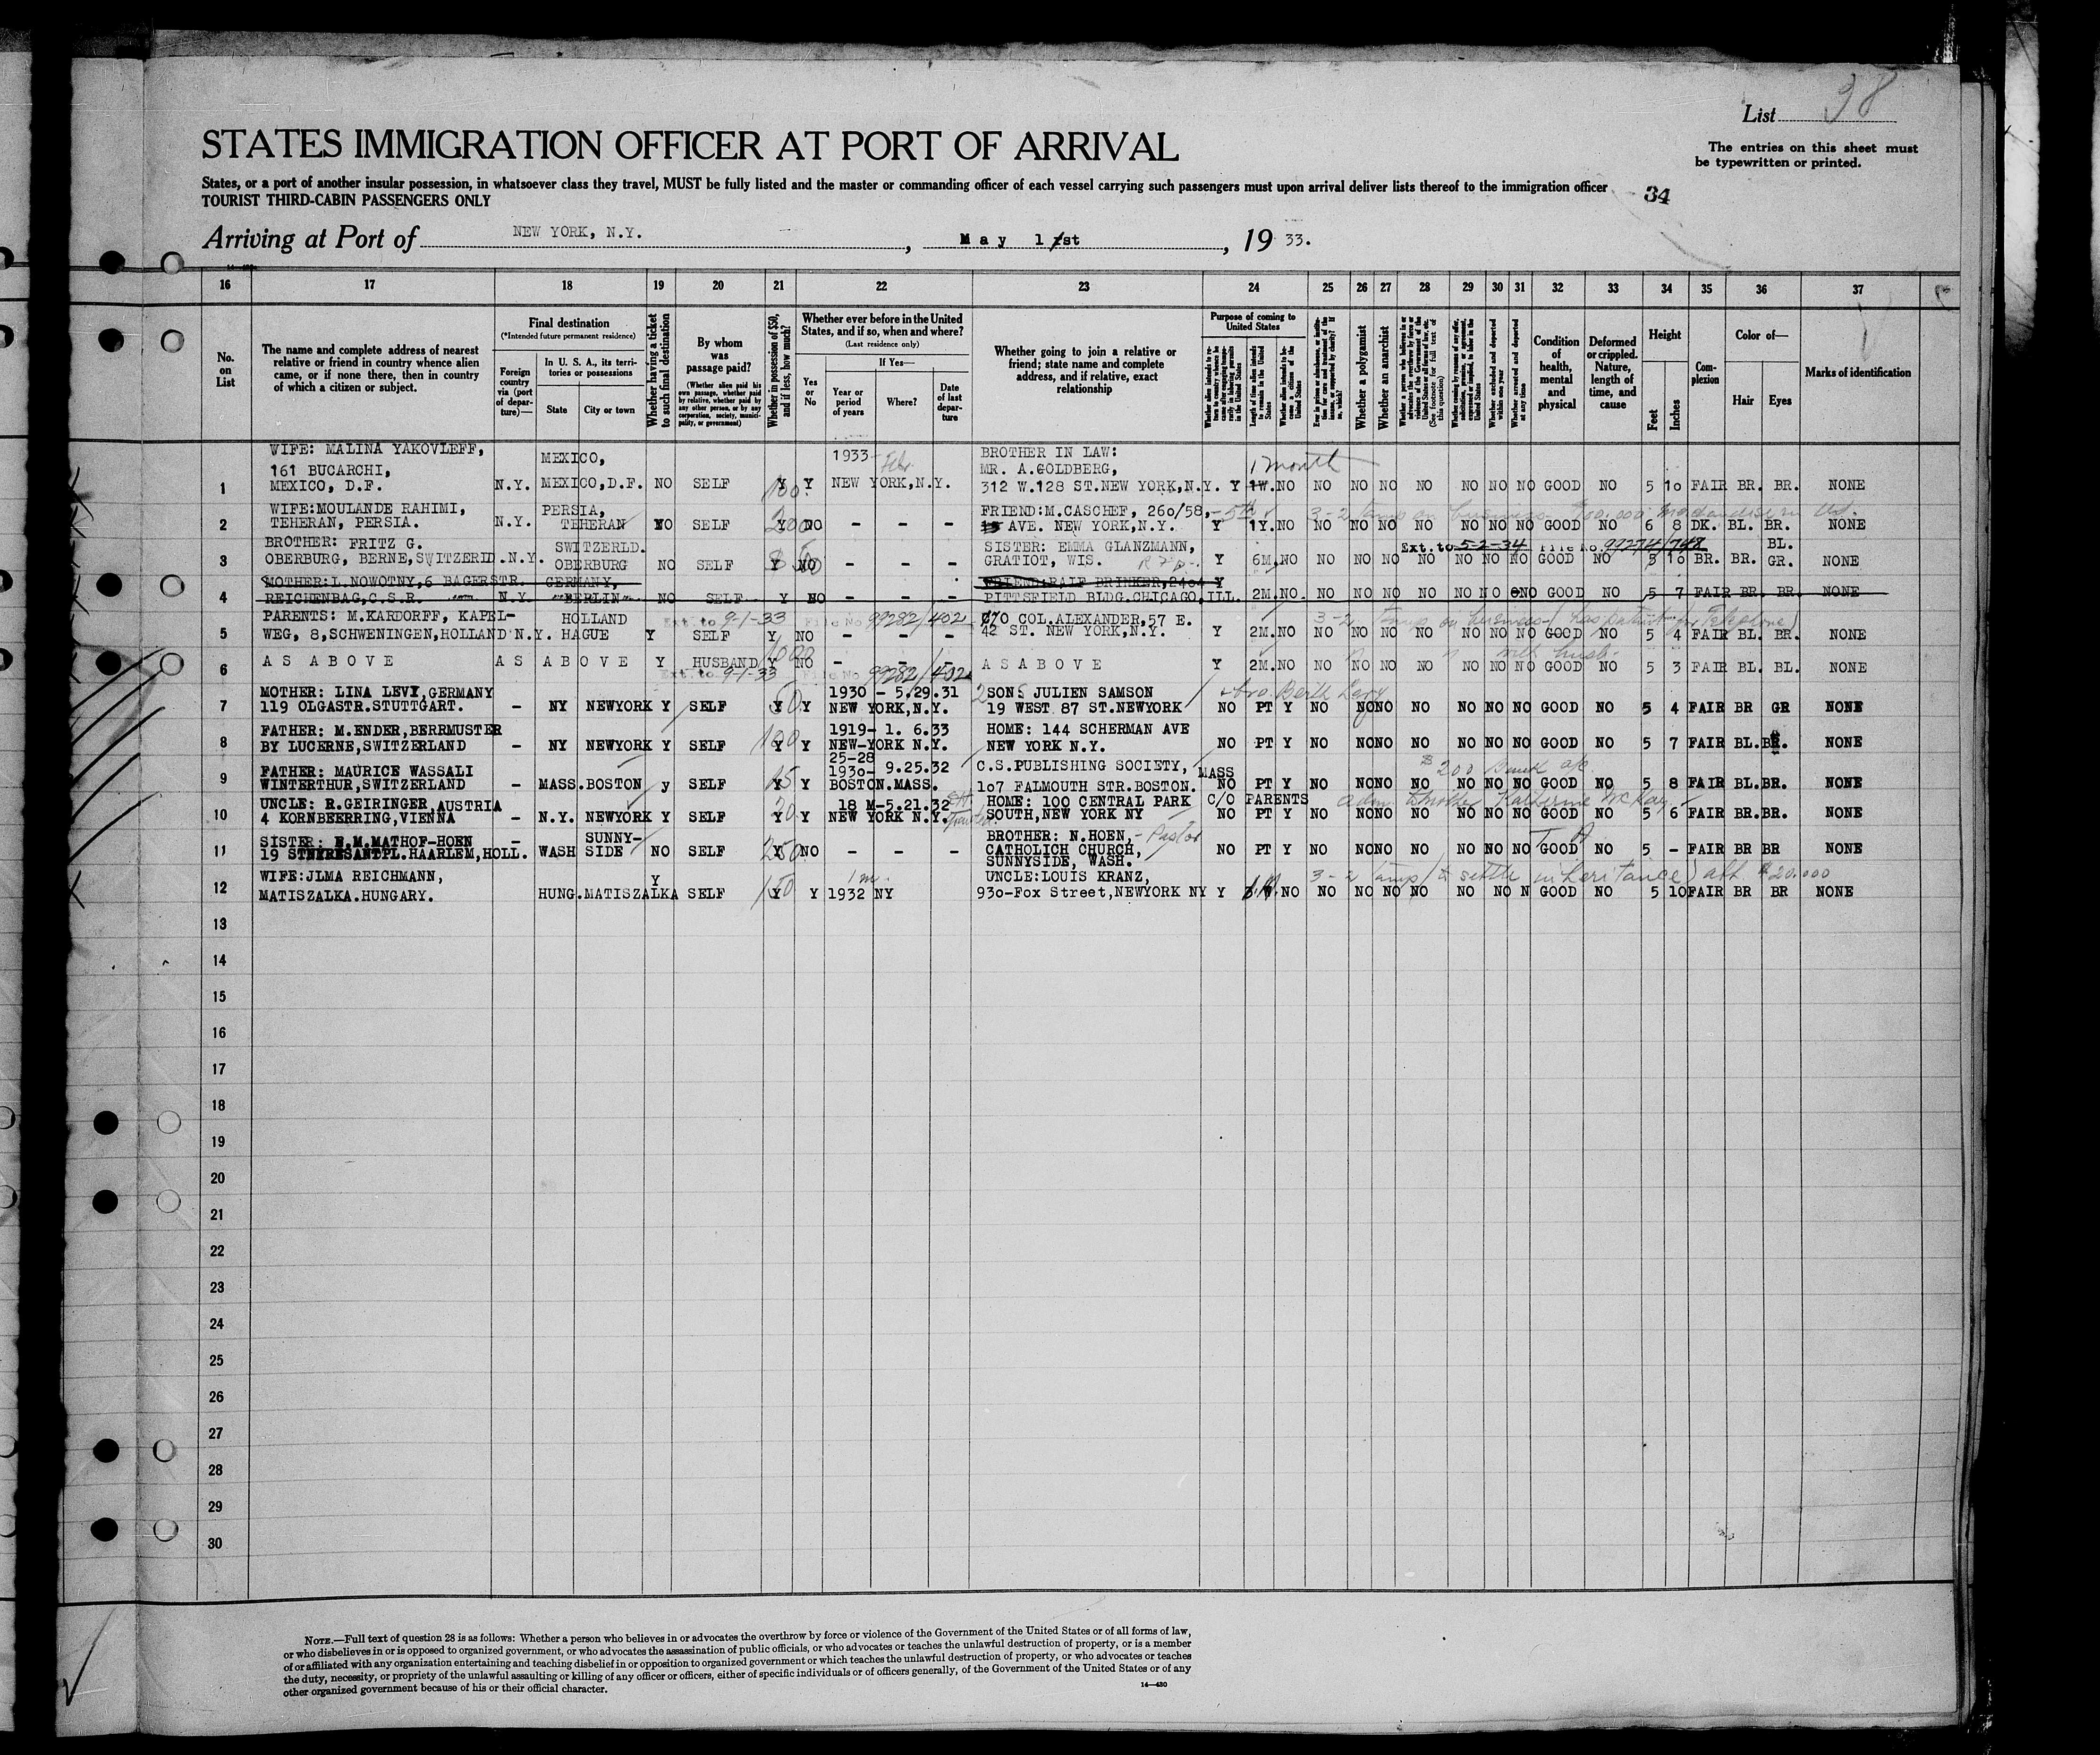 List 98
STATES IMMIGRATION OFFICER AT PORT OF ARRIVAL
The entries on this sheet must
be typewritten or printed.
States, or a port of another insular possession, in whatsoever class they travel, MUST be fully listed and the master or commanding officer of each vessel carrying such passengers must upon arrival deliver lists thereof to the immigration officer
TOURIST THIRD-CABIN PASSENGERS ONLY
34
Arriving at Port of NEW YORK, N.Y. , May 1st , 19 33.
16 17 18 19 20 21 22 23 24 25 26 27 28 29 30 31 32 33 34 35 36 37
No. on List
The name and complete address of nearest relative or friend in country whence alien came, or if none there, then in country of which a citizen or subject.
Final destination
(*Intended future permanent residence)
Foreign country via (port of departure)—
In U. S. A., its territories or possessions
State
City or town
Whether having a ticket to such final destination
By whom was passage paid?
(Whether alien paid his own passage, whether paid by relative, whether paid by any other person, or by any corporation, society, municipality, or government)
Whether in possession of $50, and if less, how much?
Whether ever before in the United States, and if so, when and where?
(Last residence only)
Yes or No
If Yes—
Year or period of years
Where?
Date of last departure
Whether going to join a relative or friend; state name and complete address, and if relative, exact relationship
Purpose of coming to United States
Length of time alien intends to remain in the United States
Whether alien intends to become a citizen of the United States
Whether a polygamist
Whether an anarchist
Whether arrested and deported at any time
Condition of health, mental and physical
Deformed or crippled. Nature, length of time, and cause
Height
Feet
Inches
Complexion
Color of—
Hair
Eyes
Marks of identification
WIFE: MALINA YAKOVLEFF, MEXICO, 1933 Feb. BROTHER IN LAW:
161 BUCARCHI, MR. A.GOLDBERG, 1 month
1 MEXICO, D.F. N.Y. MEXICO,D.F. NO SELF Y 100 Y NEW YORK,N.Y. 312 W.128 ST.NEW YORK,N.Y. Y 1W. NO NO NO NO NO NO NO NO GOOD NO 5 10 FAIR BR. BR. NONE
WIFE:MOULANDE RAHIMI, PERSIA, FRIEND:M.CASCHEF, 260/58, - 5th 3-2 temp on business $100.000 Merchandise in US.
2 TEHERAN, PERSIA. N.Y. TEHERAN NO SELF Y 200 NO - - - AVE. NEW YORK,N.Y. Y 1Y. NO NO NO NO NO NO NO NO GOOD NO 6 8 DK. BL. BR. NONE
BROTHER: FRITZ G. SWITZERLD. SISTER: EMMA GLANZMANN, Ext. to 5-2-34 File No. 99274/748 BL.
3 OBERBURG, BERNE,SWITZERLD. N.Y. OBERBURG NO SELF Y NO - - - GRATIOT, WIS. Y 6M. NO NO NO NO NO NO NO NO GOOD NO 5 10 BR. BR. GR. NONE
MOTHER:L.NOWOTNY,6 BAGERSTR. GERMANY, Y
4 REICHENBAG,C.S.R. N.Y. BERLIN NO SELF Y NO - - - PITTSFIELD BLDG.CHICAGO,ILL. 2M. NO NO NO NO NO NO NO NO GOOD NO 5 7 FAIR BR. BR. NONE
PARENTS: M.KARDORFF, KAPEL- HOLLAND Ext. to 9-1-33 File No 99282/402 COL.ALEXANDER,57 E. 3-2 temp on business (has patent for Telephone)
5 WEG, 8,SCHWENINGEN,HOLLAND N.Y. HAGUE Y SELF Y NO - - - 42 ST. NEW YORK,N.Y. Y 2M. NO NO NO NO NO NO NO NO GOOD NO 5 4 FAIR BL. BR. NONE
6 AS ABOVE AS ABOVE Y HUSBAND Y 1000 NO - - - AS ABOVE Y 2M. NO NO NO NO NO NO NO NO GOOD NO 5 3 FAIR BL. BL. NONE with husb.
Ext. to 9-1-33 File No 99282/402
MOTHER: LINA LEVY,GERMANY 1930 - 5/29.31 2 SONS JULIEN SAMSON
7 119 OLGASTR.STUTTGART. - NY NEWYORK Y SELF Y 50 Y NEW YORK,N.Y. 19 WEST 87 ST.NEWYORK NO PT Y NO NO NO NO NO NO NO GOOD NO 5 4 FAIR BR GR NONE
FATHER: M.ENDER,BERRMUSTER 1919- 1. 6.33 HOME: 144 SCHERMAN AVE
8 BY LUCERNE,SWITZERLAND - NY NEWYORK Y SELF Y 100 Y NEW-YORK N.Y. NEW YORK N.Y. NO PT Y NO NO NO NO NO NO NO GOOD NO 5 7 FAIR BL. BR. NONE
25-28
FATHER: MAURICE WASSALI 1930- 9.25.32 C.S.PUBLISHING SOCIETY, MASS $200 Bank a/c
9 WINTERTHUR,SWITZERLAND - MASS. BOSTON y SELF Y 15 Y BOSTON.MASS. 107 FALMOUTH STR.BOSTON. NO PT Y NO NO NO NO NO NO NO GOOD NO 5 8 FAIR BL. BR. NONE
UNCLE: R.GEIRINGER,AUSTRIA 18 M-5.21.32 HOME: 100 CENTRAL PARK C/O PARENTS
10 4 KORNBEERRING,VIENNA - N.Y. NEWYORK Y SELF Y 20 Y NEW YORK N.Y. SOUTH,NEW YORK NY NO PT Y NO NO NO NO NO NO NO GOOD NO 5 6 FAIR BR. BR. NONE
SISTER: N.M.MATHOF-HOEN SUNNY- BROTHER: N.HOEN, - Pastor
11 19 STNYRESANTPL.HAARLEM,HOLL. - WASH SIDE NO SELF Y 250 NO - - - CATHOLICH CHURCH, NO PT Y NO NO NO NO NO NO NO GOOD NO 5 - FAIR BR BR NONE
SUNNYSIDE, WASH.
WIFE:JLMA REICHMANN, Y 1 m. UNCLE:LOUIS KRANZ, 3-2 temp/to settle inheritance) abt. $20.000
12 MATISZALKA.HUNGARY. HUNG. MATISZALKA SELF Y 150 Y 1932 NY 930-Fox Street,NEWYORK NY Y NO NO NO NO NO NO NO N GOOD NO 5 10 FAIR BR BR NONE
13
14
15
16
17
18
19
20
21
22
23
24
25
26
27
28
29
30
NOTE.—Full text of question 28 is as follows: Whether a person who believes in or advocates the overthrow by force or violence of the Government of the United States or of all forms of law,
or who disbelieves in or is opposed to organized government, or who advocates the assassination of public officials, or who advocates or teaches the unlawful destruction of property, or is a member
of or affiliated with any organization entertaining and teaching disbelief in or opposition to organized government or which teaches the unlawful destruction of property, or who advocates or teaches
the duty, necessity, or propriety of the unlawful assaulting or killing of any officer or officers, either of specific individuals or of officers generally, of the Government of the United States or of any
other organized government because of his or their official character.
14—430